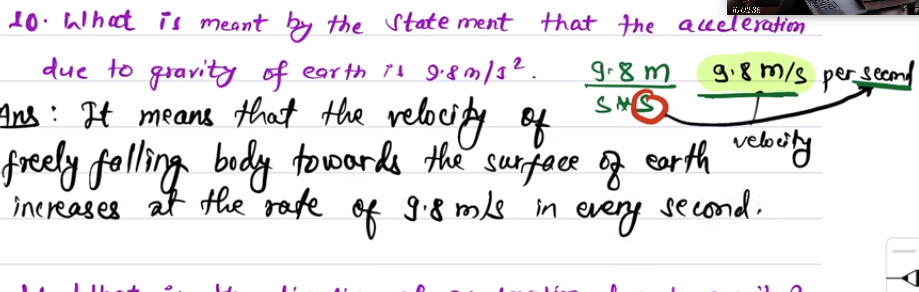 10. What is meant by the statement that the acceleration
due to gravity of earth is 9.8 m/s². 9.8 m 9.8 m/s per second
s * s
velocity
Ans : It means that the velocity of
freely falling body towards the surface of earth
increases at the rate of 9.8 m/s in every second.